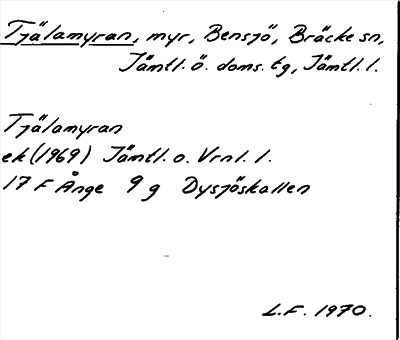 Tjälamyran, myr, Bensjö, Bräcke sn,
Jämtl. ö. doms. tg, Jämtl. l.
Tjälamyran
ek (1969) Jämtl. o. Vrnl. l.
17 F Ånge 9 g Dysjöskallen
L.F. 1970.